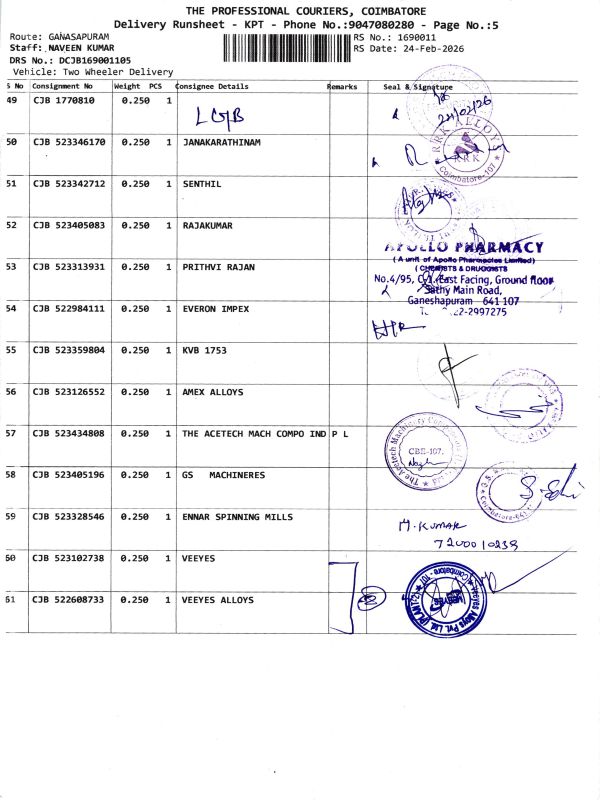 THE PROFESSIONAL COURIERS, COIMBATORE
Delivery Runsheet - KPT - Phone No.:9047080280 - Page No.:5
Route: GANASAPURAM
RS No.: 1690011
Staff: NAVEEN KUMAR
RS Date: 24-Feb-2026
DRS No.: DCJB169001105
Vehicle: Two Wheeler Delivery
S No Consignment No Weight PCS Consignee Details Remarks Seal & Signature
49 CJB 1770810 0.250 1 LGB
24/02/26
RRK ALLOY
RRK
Coimbatore-107
50 CJB 523346170 0.250 1 JANAKARATHINAM
51 CJB 523342712 0.250 1 SENTHIL
52 CJB 523405083 0.250 1 RAJAKUMAR
APOLLO PHARMACY
(A unit of Apollo Pharmacies Limited)
(CHEMISTS & DRUGGISTS
53 CJB 523313931 0.250 1 PRITHVI RAJAN
No.4/95, East Facing, Ground floor
Sathy Main Road,
Ganeshapuram 641 107
22-2997275
54 CJB 522984111 0.250 1 EVERON IMPEX
55 CJB 523359804 0.250 1 KVB 1753
56 CJB 523126552 0.250 1 AMEX ALLOYS
57 CJB 523434808 0.250 1 THE ACETECH MACH COMPO IND P L
The Acetech Machinery
CBE-107.
58 CJB 523405196 0.250 1 GS MACHINERES
59 CJB 523328546 0.250 1 ENNAR SPINNING MILLS
M. KUMAR
7200010239
60 CJB 523102738 0.250 1 VEEYES
61 CJB 522608733 0.250 1 VEEYES ALLOYS
2
Veeyes Alloys Pvt. Ltd. (PLANT-2)
Coimbatore - 107
VEEYES